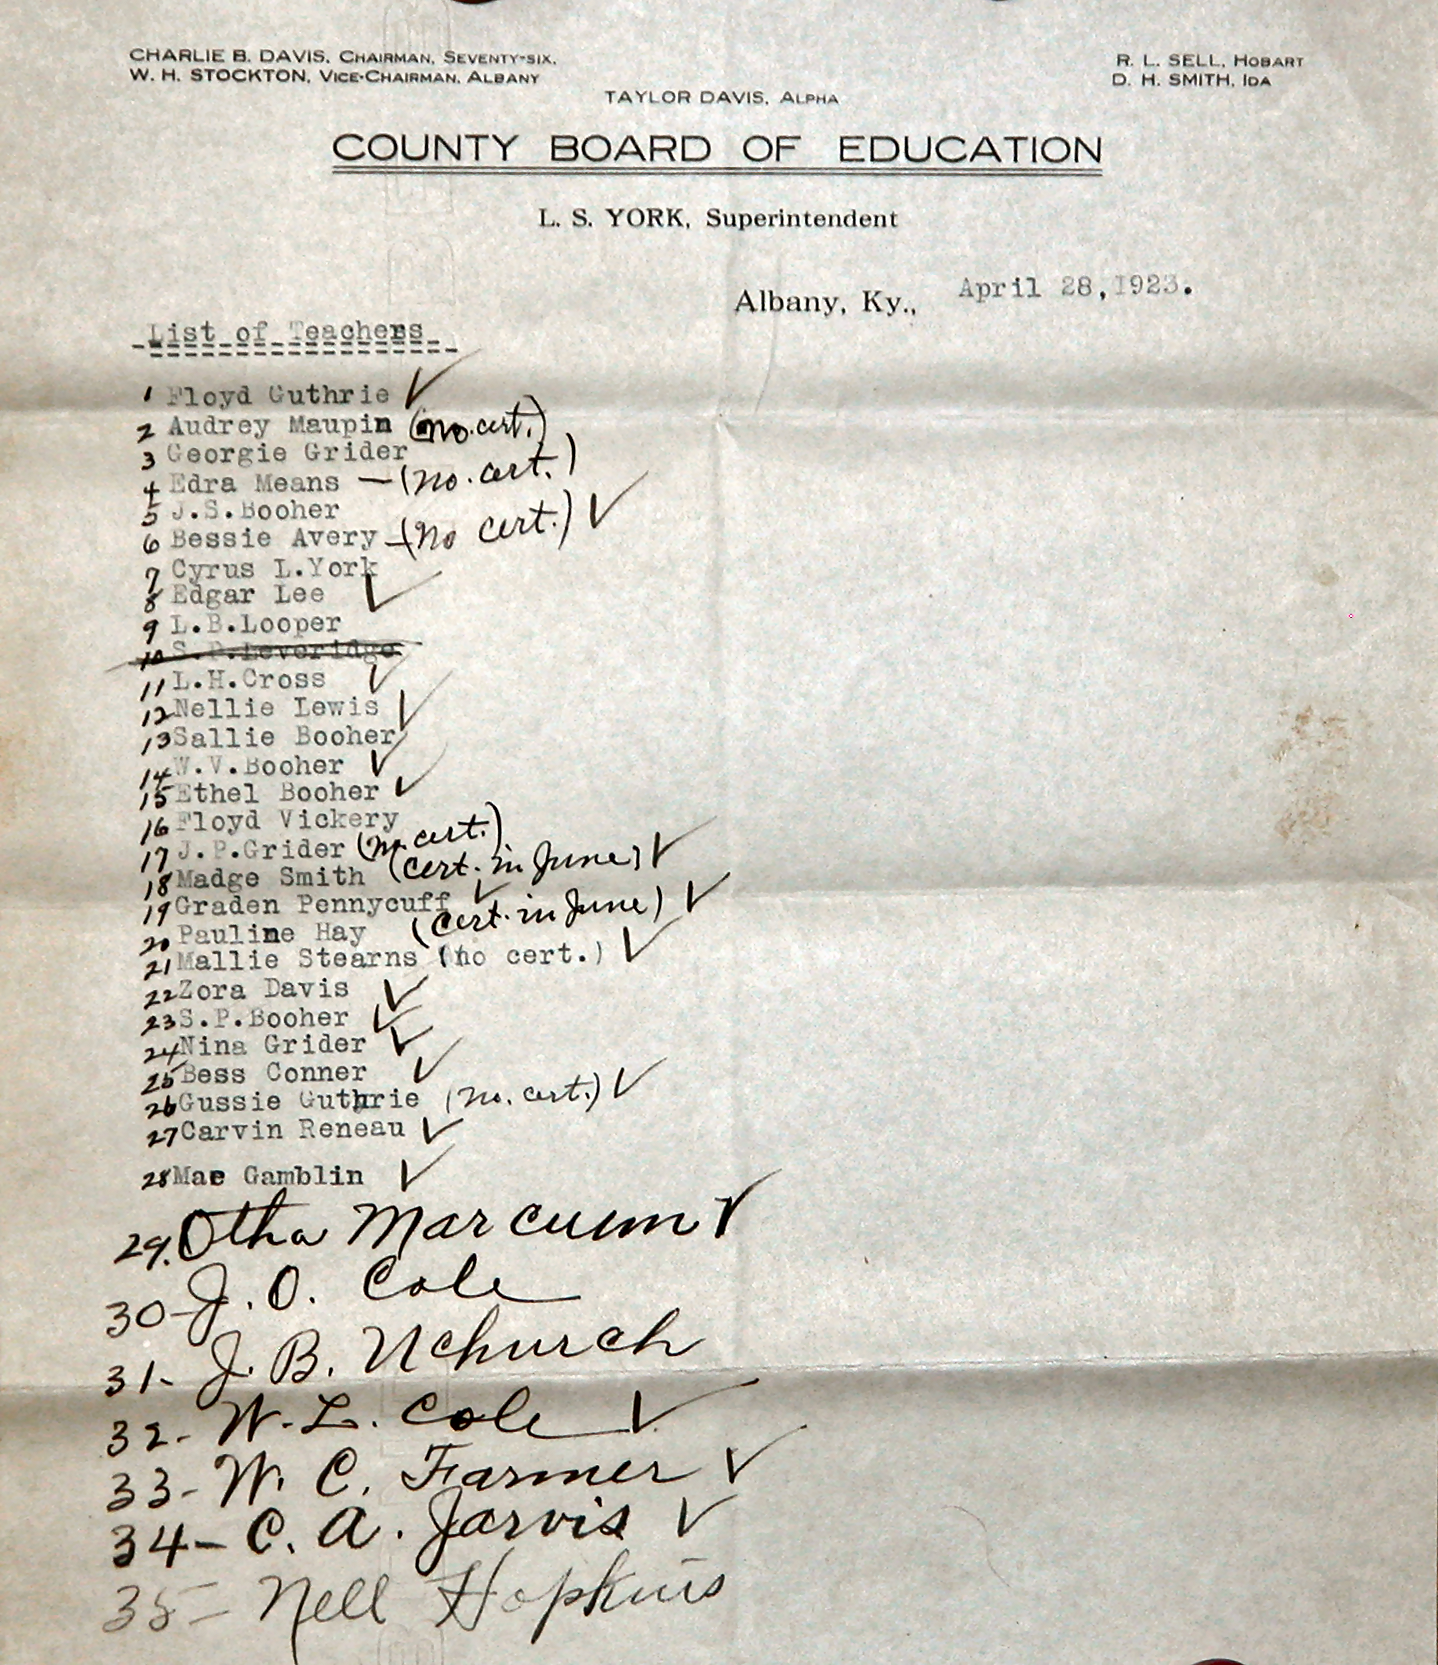 CHARLIE B. DAVIS, CHAIRMAN, SEVENTY-SIX,
W. H. STOCKTON, VICE-CHAIRMAN, ALBANY
R. L. SELL, HOBART
D. H. SMITH, IDA
TAYLOR DAVIS, ALPHA
COUNTY BOARD OF EDUCATION
L. S. YORK, Superintendent
Albany, Ky., April 28,1923.
List of Teachers
1 Floyd Guthrie ✓
2 Audrey Maupin (no. cert.)
3 Georgie Grider
4 Edra Means — (no. cert.)
5 J.S.Booher
6 Bessie Avery — (no cert.) ✓
7 Cyrus L.York
8 Edgar Lee ✓
9 L.B.Looper
10 S.P.Leveridge
11 L.H.Cross ✓
12 Nellie Lewis ✓
13 Sallie Booher
14 W.V.Booher ✓
15 Ethel Booher ✓
16 Floyd Vickery
17 J.P.Grider (no. cert.)
18 Madge Smith (cert. in June) ✓
19 Graden Pennycuff ✓
20 Pauline Hay (cert. in June) ✓
21 Mallie Stearns (no cert.) ✓
22 Zora Davis ✓
23 S.P.Booher ✓
24 Nina Grider ✓
25 Bess Conner ✓
26 Gussie Guthrie (no. cert.) ✓
27 Carvin Reneau ✓
28 Mae Gamblin ✓
29. Otha Marcum ✓
30- J. O. Cole
31- J. B. Uchurch
32- W. L. Cole ✓
33- W. C. Farmer ✓
34- C. A. Jarvis ✓
35- Nell Hopkins